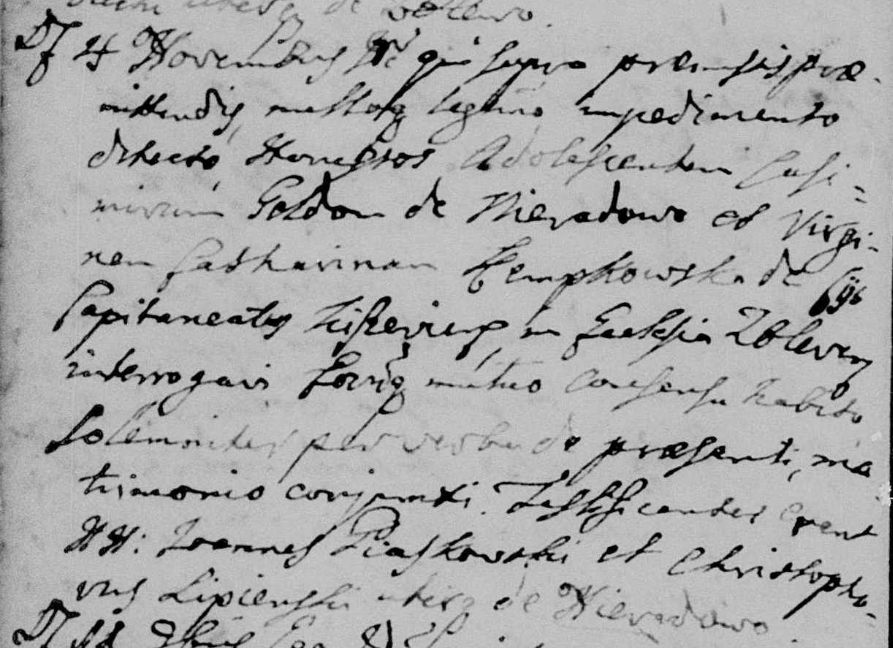 de
D 4 Novembris Idem qui supra præmissis præ
mittendis, nulloq legitimo impedimento
detecto Honestos Adolescentem Casi=
mirum Goldon de Nieradowo et Virgi=
nem Catharinam Kempkowska de
Capitaneatus in Ecclesia Zbleven
interrogavi Eorūq mutuo consensu habito
Solemniter per verba de præsenti, ma
trimonio conjunxi. Testificantes erant
HH: Joannes Piaskowski et Christopho-
rus Lipienski uterq de Nieradowo.